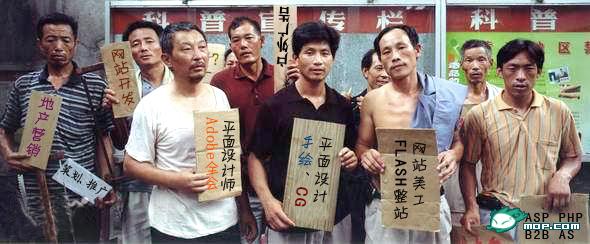 科普宣传栏
科普
网站开发
外广告
?
地产营销
策划、推广
平面设计师
Adobe
平面设计
手绘、CG
网站美工
FLASH整站
ASP PHP
B2B AS
mop.com